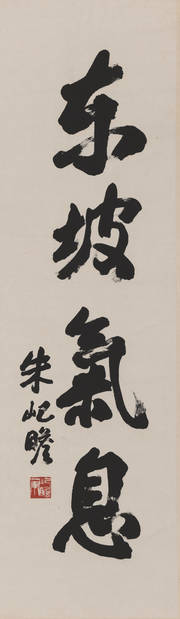 东坡氣息
朱屺瞻